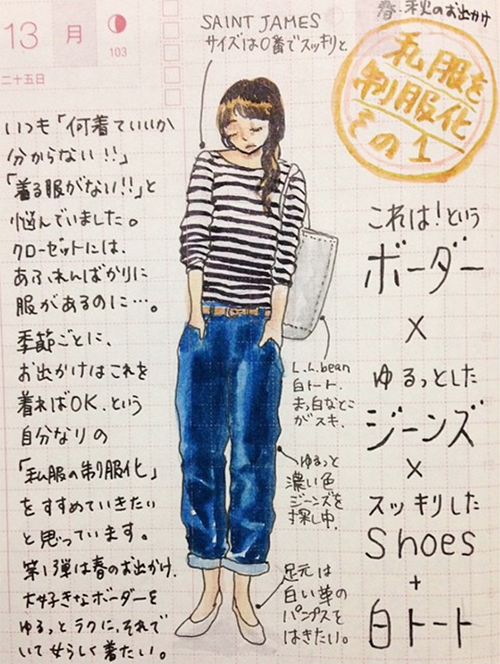 13 月
103
二十五日
SAINT JAMES
サイズは0番でスッキリと。
春、秋のお出かけ
私服を
制服化
その1
いつも「何着ていいか
分からない!!」
「着る服がない!!」と
悩んでいました。
クローゼットには、
あふれんばかりに
服があるのに…。
季節ごとに、
お出かけはこれを
着ればOK、という
自分なりの
「私服の制服化」
をすすめていきたい
と思っています。
第1弾は春のお出かけ。
大好きなボーダーを
ゆるっとラクに、それで
いて女らしく着たい。
L.L.bean
白トート.
まっ白なとこ
がスキ.
ゆるっと
濃い色
ジーンズを
探し中.
足元は
白い革の
パンプスを
はきたい。
これは!という
ボーダー
×
ゆるっとした
ジーンズ
×
スッキリした
Shoes
+
白トート